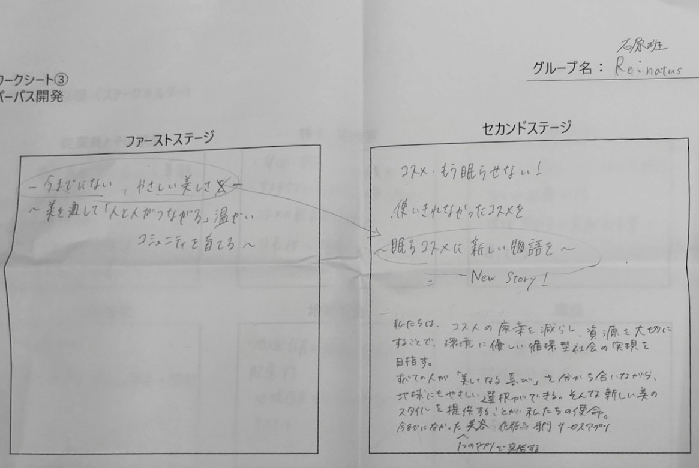 石原班
グループ名： Re:natus
ワークシート③
パーパス開発
ファーストステージ
ー今までにない、やさしい美しさー
〜美を通して「人と人がつながる」温かい
コミュニティを育てる〜
セカンドステージ
コスメ、もう眠らせない！
使いきれなかったコスメを
〜眠るコスメに新しい物語を〜
New Story!
私たちは、コスメの廃棄を減らし、資源を大切に
することで、環境に優しい循環型社会の実現を
目指す。
すべての人が「美しくなる喜び」を分かち合いながら、
地球にもやさしい選択ができる。そんな新しい美の
スタイルを提供することが私たちの使命。
今までになかった美容
アプリで